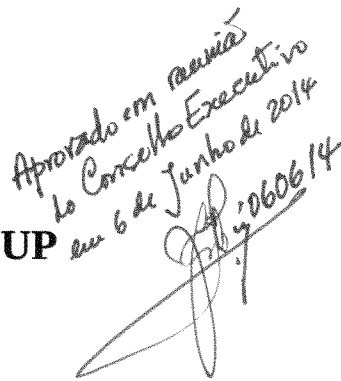 Aprovado em reunião
do Conselho Executivo
em 6 de Junho de 2014
060614
UP